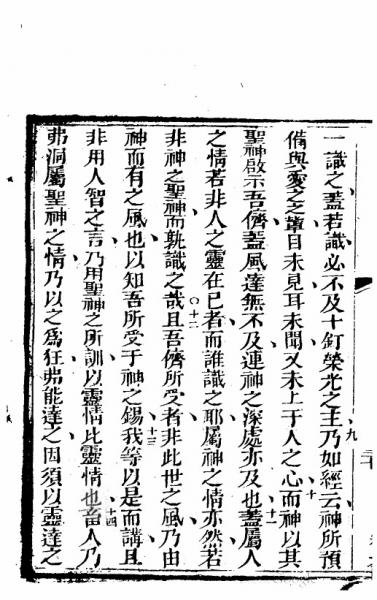 一識之蓋若識必不及十釘榮光之王乃如經云神所預
備與愛之之輩目未見耳未聞又未上于人之心而神以其
聖神啟示吾儕蓋風達無不及連神之深處亦及也蓋屬人
之情若非人之靈在己者而誰識之耶屬神之情亦然若
非神之聖神而孰識之哉且吾儕所受者非此世之風乃由
神而有之風也以知吾所受于神之錫我等以是而講且
非用人智之言乃用聖神之所訓以靈情此靈情也畜人乃
弗洞屬聖神之情乃以之為狂弗能達之因須以靈達之
九
十
十一
十二
十三
十四